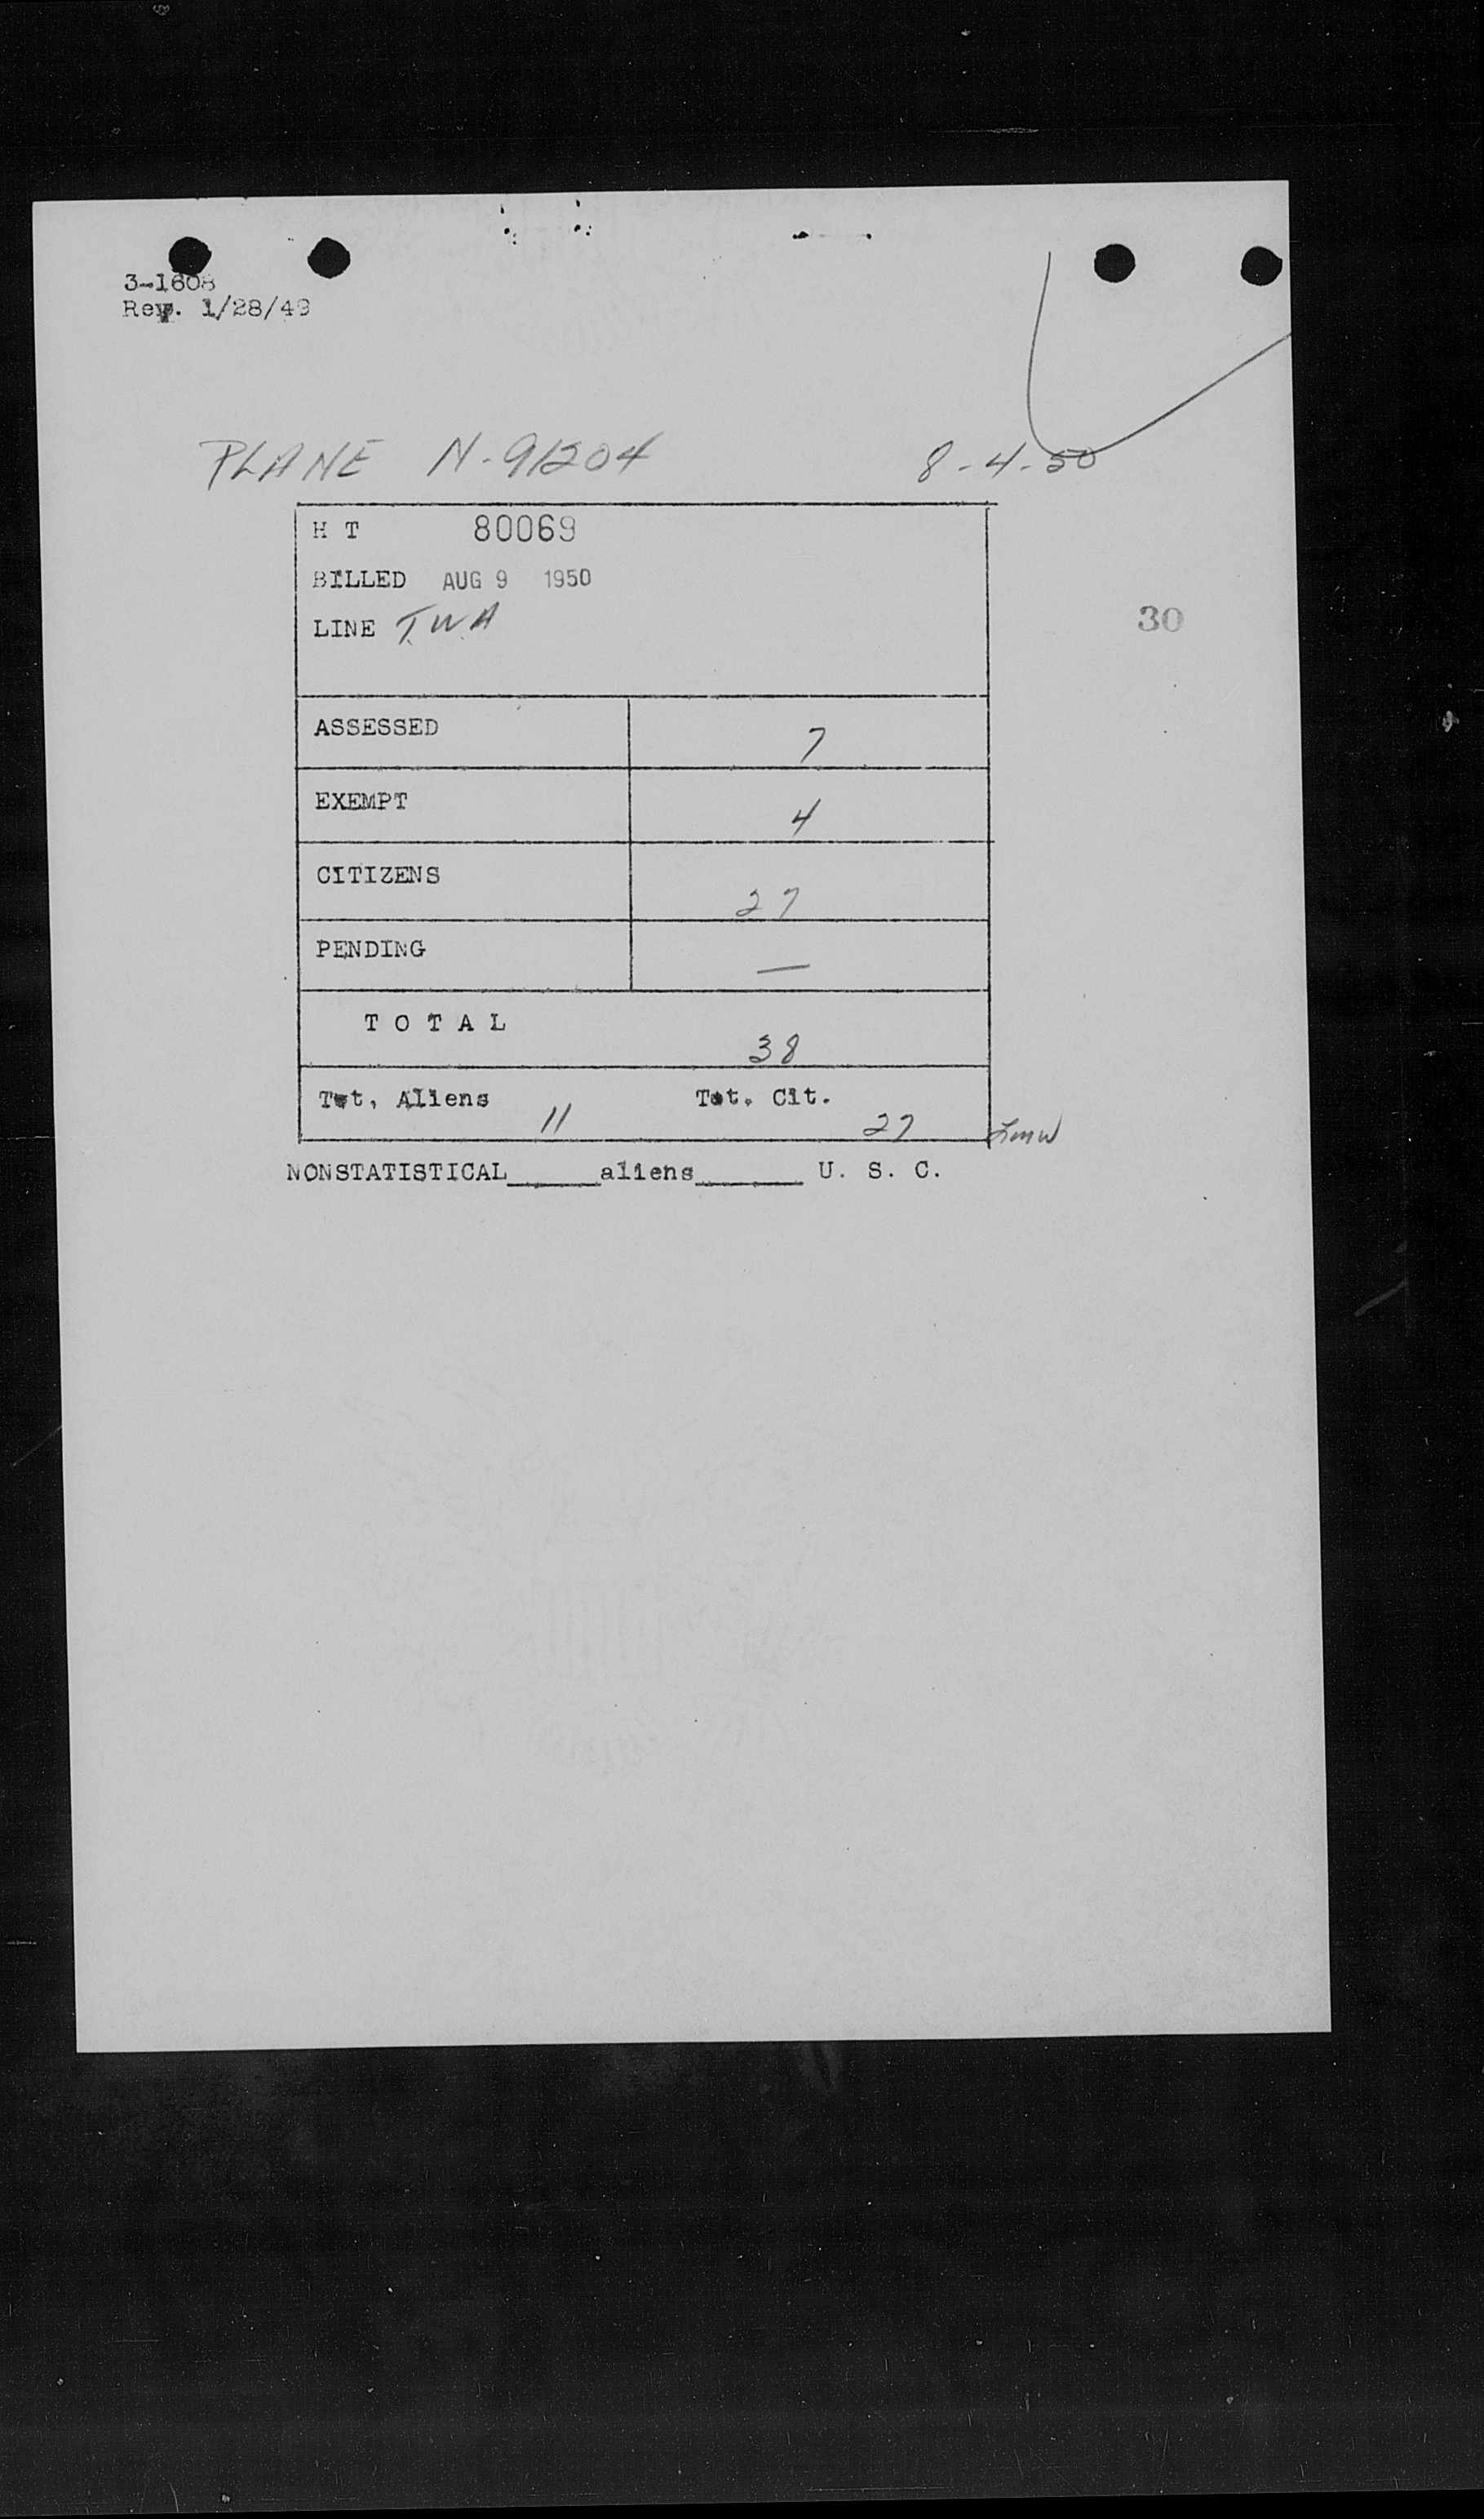 3-1608
Rev. 1/28/49
PLANE N-91204 8-4-50
H T 80069
BILLED AUG 9 1950
LINE T.W.A
30
ASSESSED 7
EXEMPT 4
CITIZENS 27
PENDING —
T O T A L 38
Tot. Aliens 11 Tot. Cit. 27
NONSTATISTICAL_____aliens______ U. S. C.